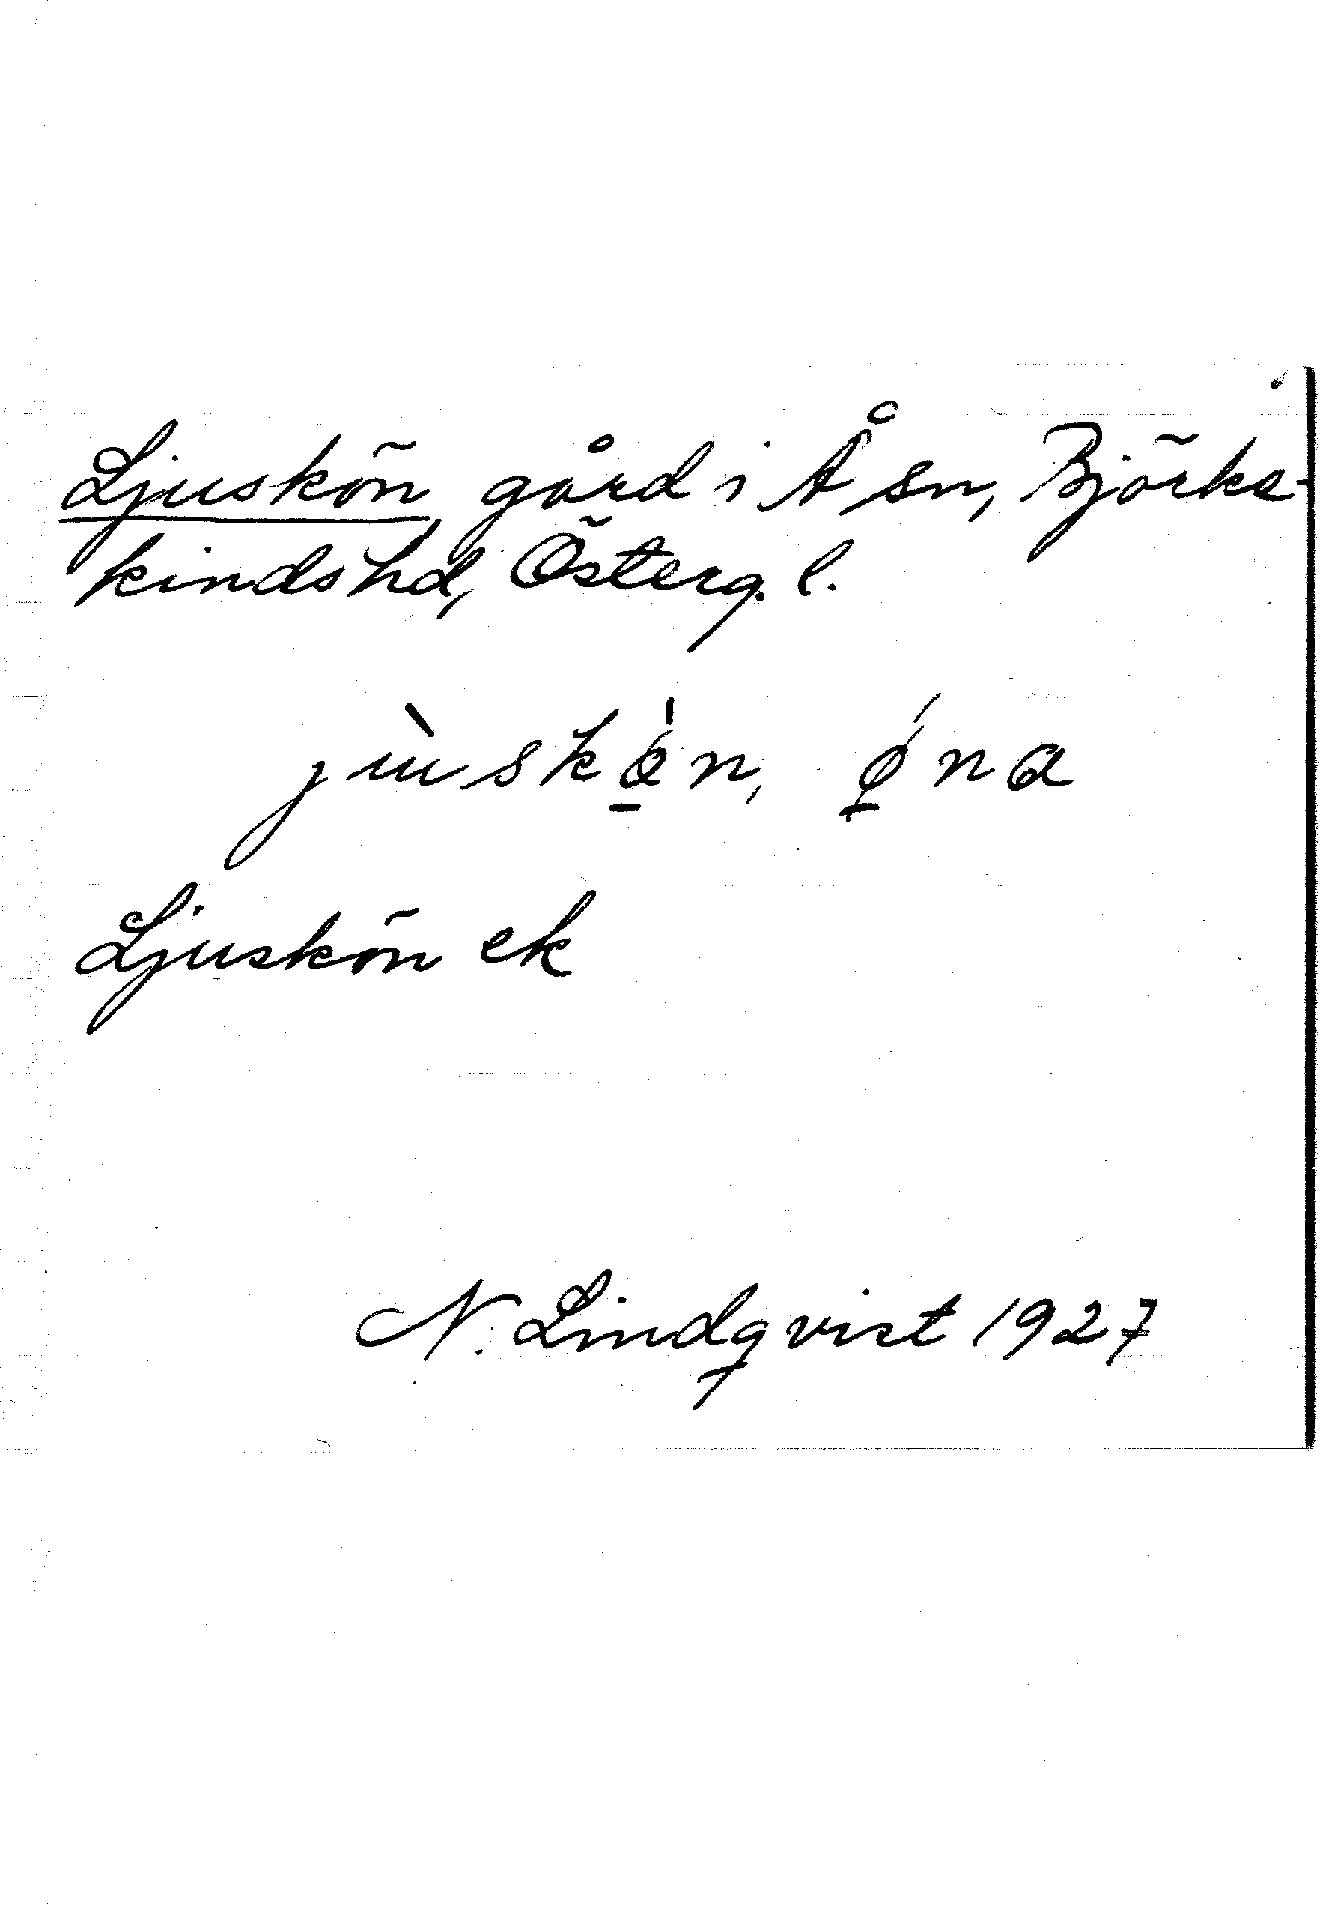 Ljuskön, gård i Å sn, Björke-
kindshd, Österg. l.
jùskø̱̀n, ǿ̱na
Ljuskön ek
N. Lindqvist 1927